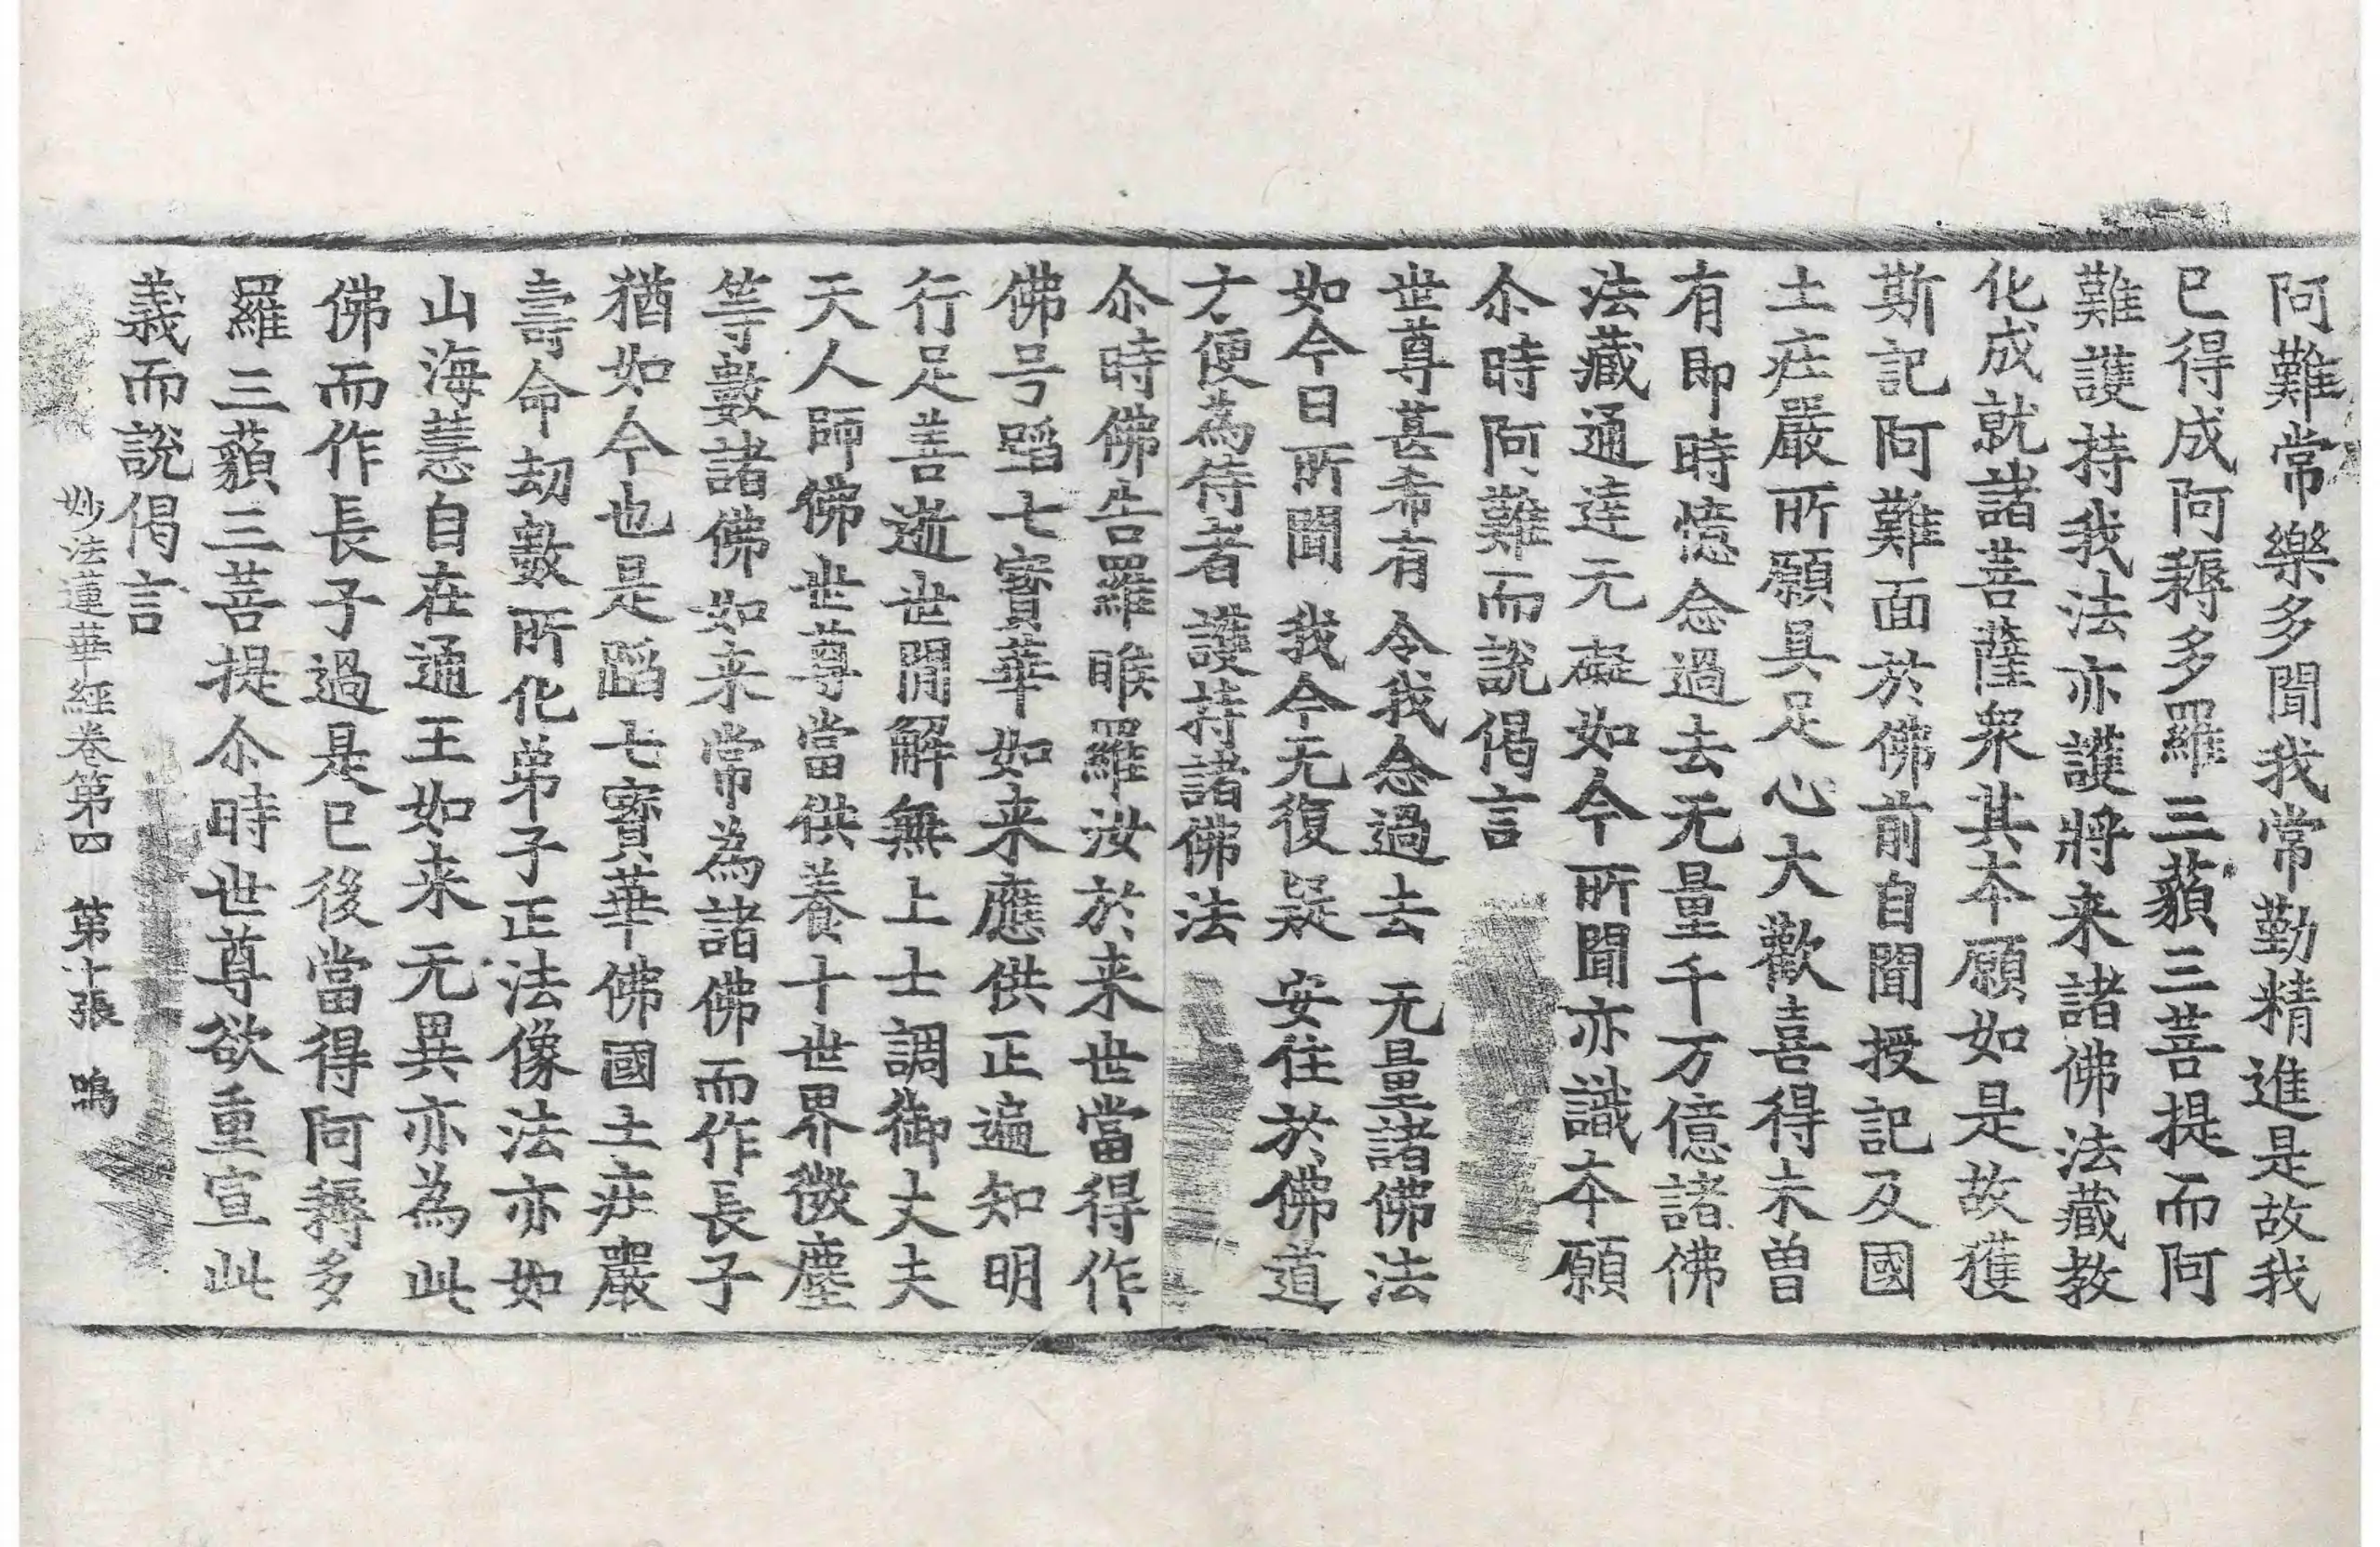 阿難常樂多聞我常勤精進是故我
已得成阿耨多羅三藐三菩提而阿
難護持我法亦護將来諸佛法藏教
化成就諸菩薩衆其本願如是故獲
斯記阿難面於佛前自聞授記及國
土庄嚴所願具足心大歡喜得未曽
有即時憶念過去无量千万億諸佛
法藏通達无礙如今所聞亦識本願
尒時阿難而說偈言
世尊甚希有 令我念過去 无量諸佛法
如今日所聞 我今无復疑 安住於佛道
方便為侍者 護持諸佛法
尒時佛告羅睺羅汝於来世當得作
佛号蹈七寳華如来應供正遍知明
行足善逝世間解無上士調御丈夫
天人師佛世尊當供養十世界微塵
等數諸佛如来常為諸佛而作長子
猶如今也是蹈七寳華佛國土庄嚴
壽命劫數所化弟子正法像法亦如
山海慧自在通王如来无異亦為此
佛而作長子過是已後當得阿耨多
羅三藐三菩提尒時世尊欲重宣此
義而說偈言
妙法蓮華經卷第四 第十張